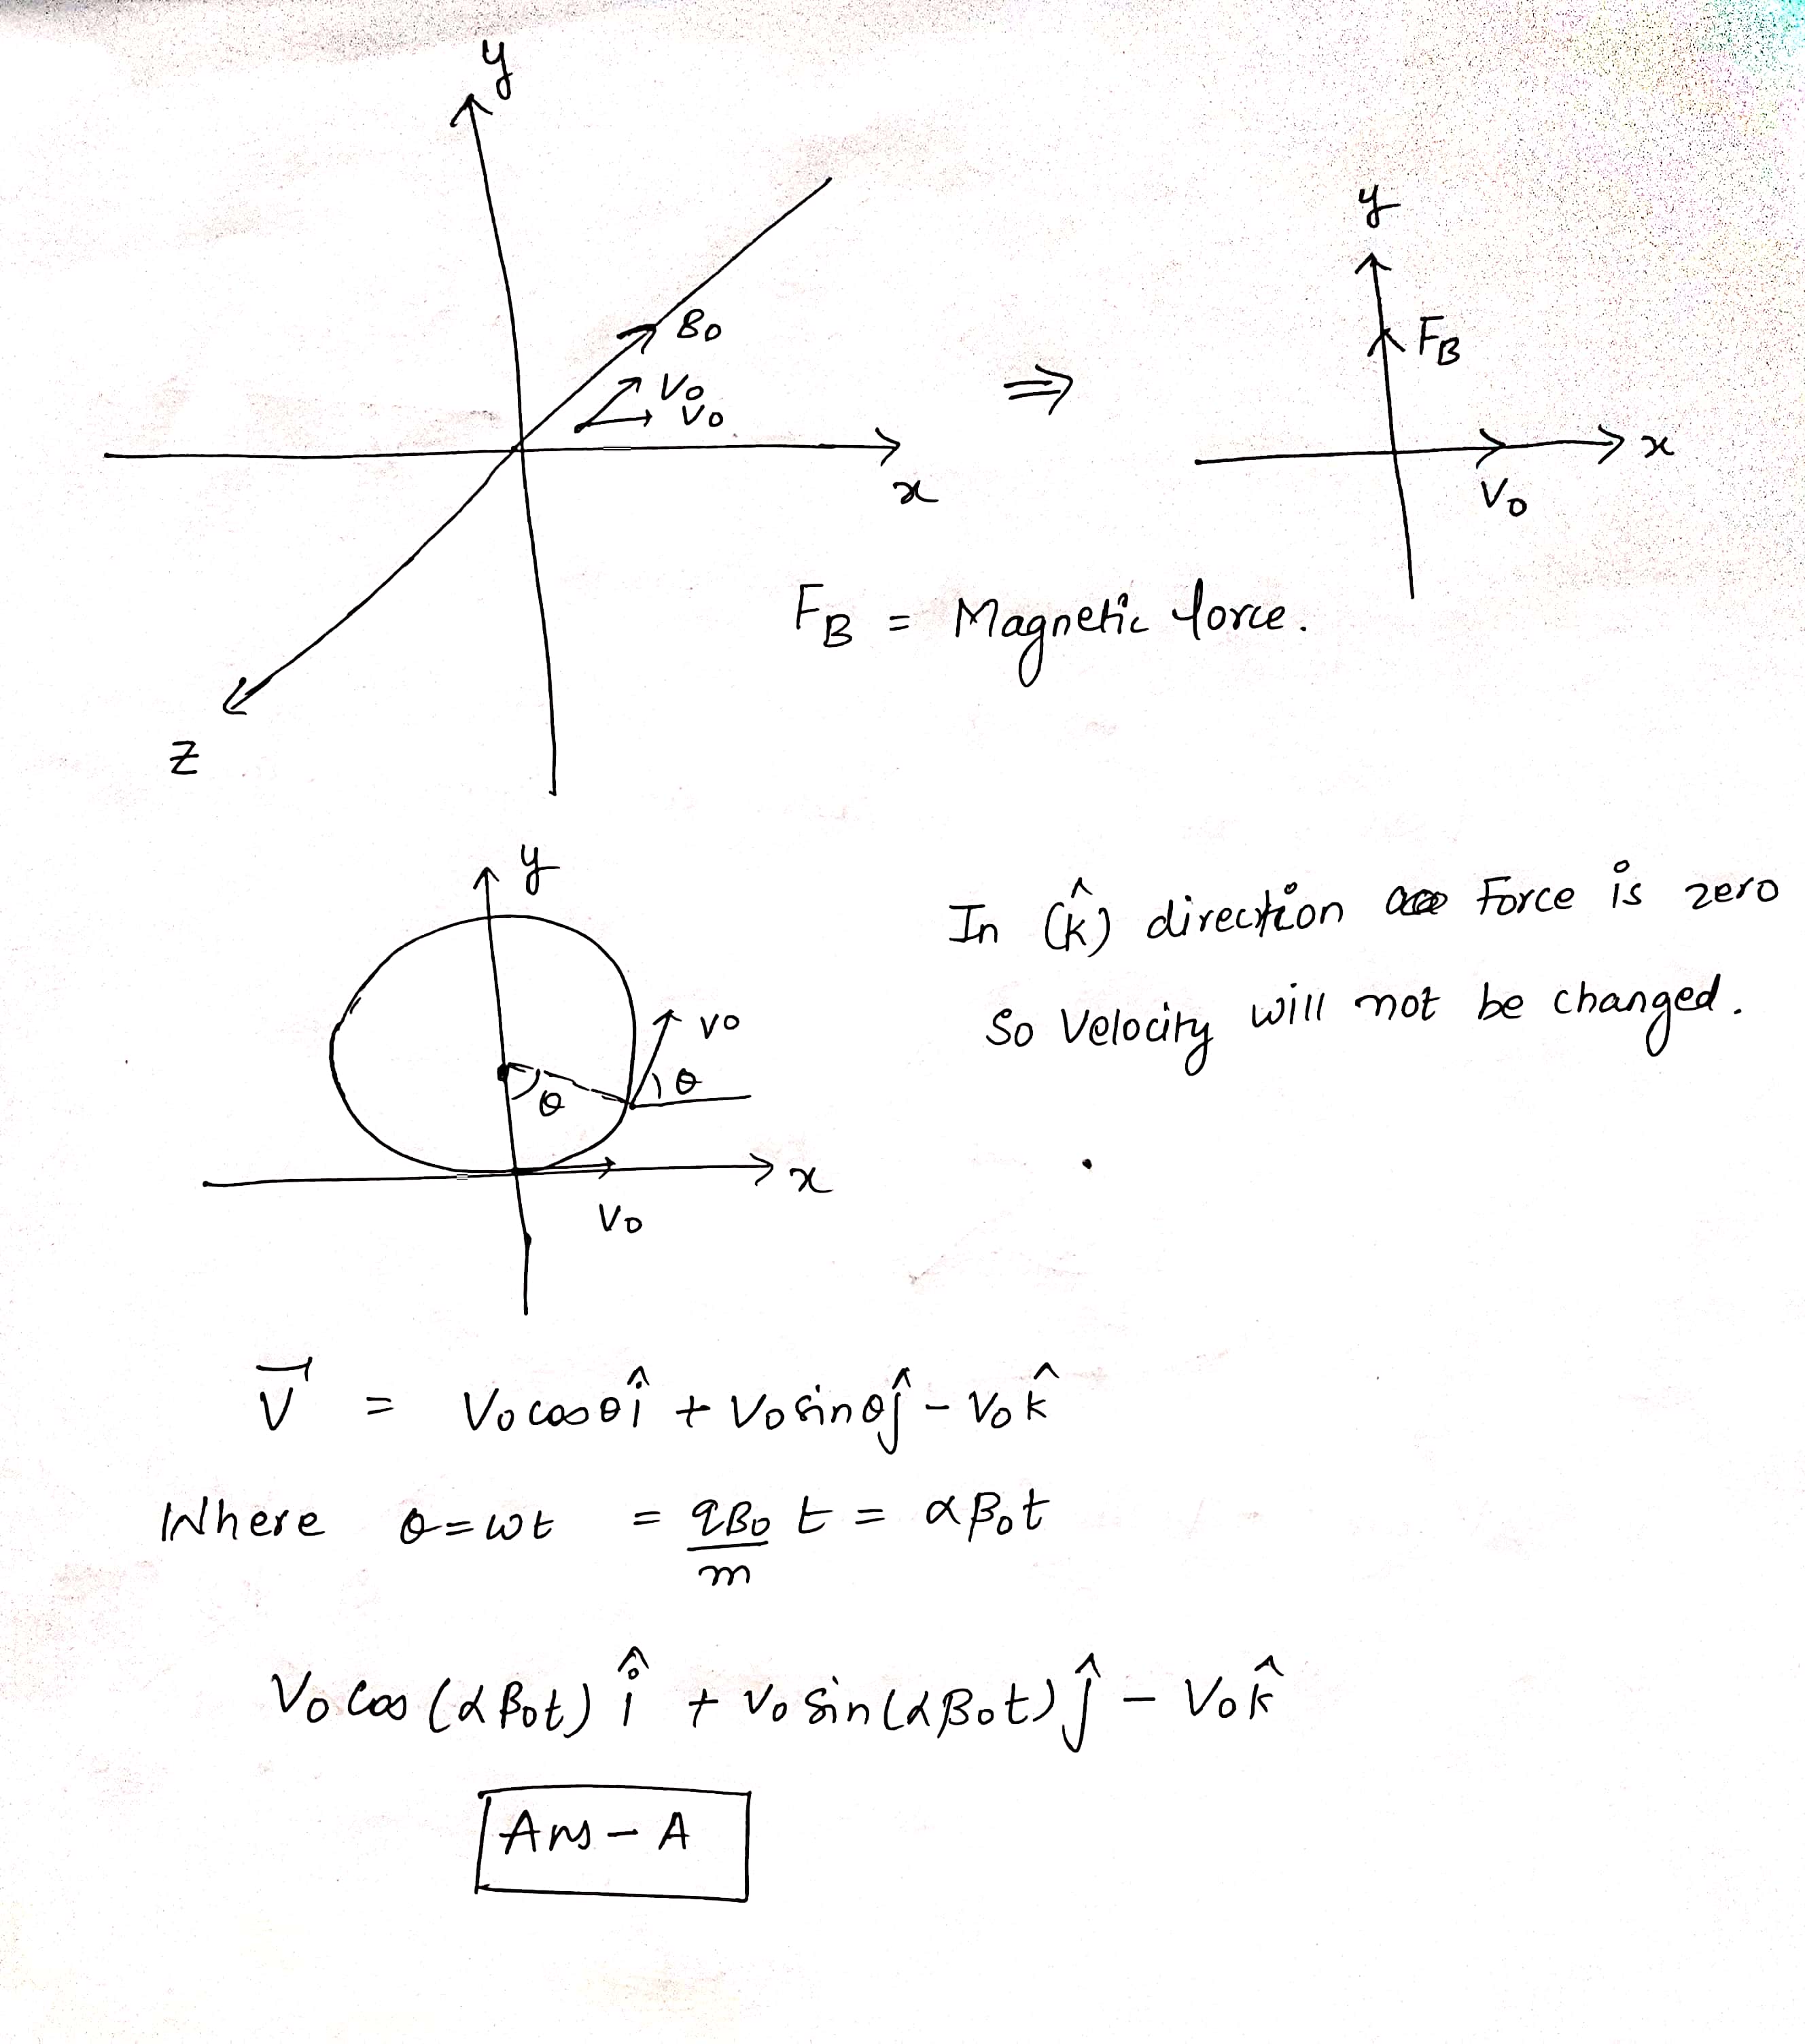 y
B₀
V₀
V₀
x
z
⇒
y
F_B
x
V₀
F_B = Magnetic force.
y
V₀
θ
θ
x
V₀
In (k̂) direction Force is zero
So Velocity will not be changed.
V⃗ = V₀cosθ î + V₀sinθ ĵ - V₀k̂
Where θ = ωt = qB₀/m t = αB₀t
V₀cos(αB₀t) î + V₀sin(αB₀t) ĵ - V₀k̂
Ans - A